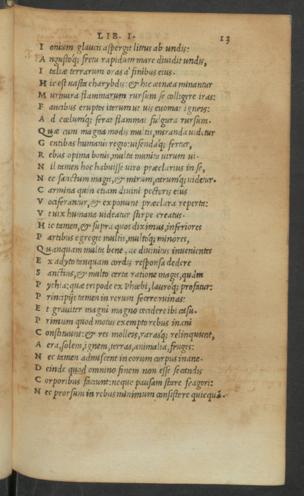 LIB. I. 13
I onium glaucis aspergit litus ab undis:
A ngustoq; fretu rapidum mare diuidit undis,
I taliæ terrarum oras a' finibus eius.
H ic est uasta charybdis: & hic ætnæa minantur
M urmura flammarum rursum se colligere iras:
F aucibus eruptos iterum ut uis euomat ignes:
A d cœlumq; ferat flammai fulgura rursum.
Quæ cum magna modis multis, miranda uidetur
G entibus humanis regio: uisendaq; fertur,
R ebus opima bonis, multa munita uirum ui.
N il tamen hoc habuisse uiro præclarius in se,
N ec sanctum magis, & mirum, carumq; uidetur.
C armina quin etiam diuini pectoris eius
V ociferantur, & exponunt præclara reperta:
V t uix humana uideatur stirpe creatus.
H ic tamen, & supra quos diximus, inferiores
P artibus egregie multis, multoq; minores,
Quanquam multa bene, ac diuinitus inuenientes
E x adyto tanquam cordis responsa dedere
S anctius, & multo certa ratione magis, quàm
P ythia: quæ tripode ex Phœbi, lauroq; profatur:
P rincipijs tamen in rerum fecere ruinas:
E t grauiter magni magno cecidere ibi casu.
P rimum quod motus exempto rebus inani
C onstituunt: & res molleis, rarasq; relinquunt,
A era, solem, ignem, terras, animalia, fruges:
N ec tamen admiscent in eorum corpus inane.
D einde quod omnino finem non esse secandis
C orporibus faciunt: neque pausam stare fragori:
N ec prorsum in rebus minimum consistere quicquã.